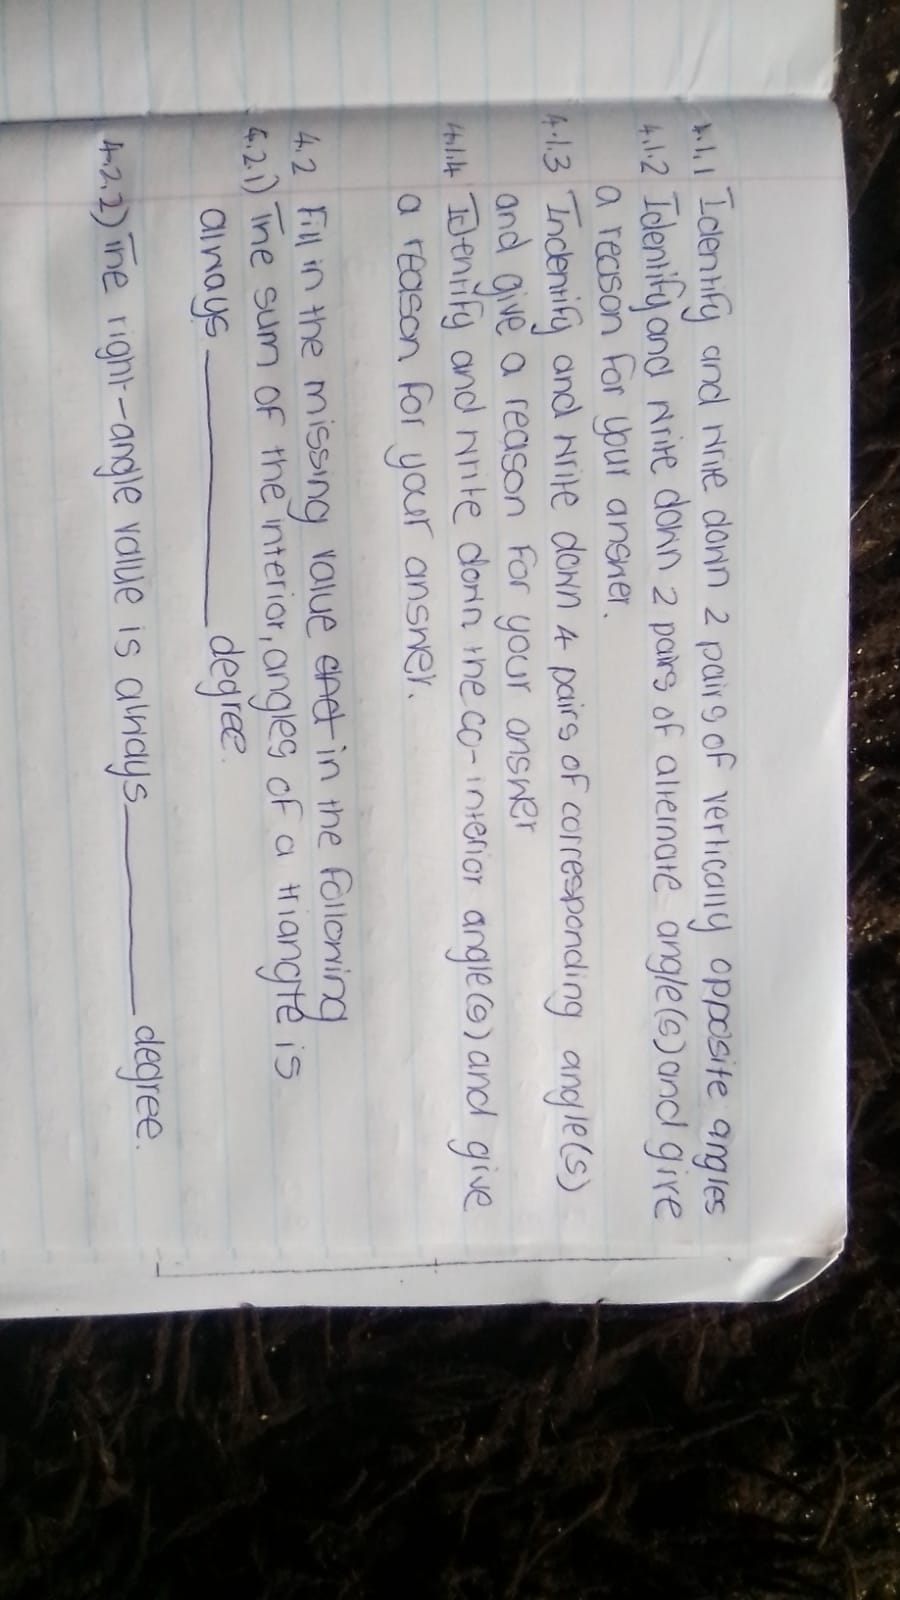 4.1.1 Identify and write down 2 pairs of vertically opposite angles
4.1.2 Identify and write down 2 pairs of alternate angle(s) and give
a reason for your answer.
4.1.3 Indentify and write down 4 pairs of corresponding angle(s)
and give a reason for your answer
4.1.4 Identify and write down the co-interior angle(s) and give
a reason for your answer.
4.2 Fill in the missing value and in the following
4.2.1) The sum of the interior, angles of a triangle is
always ________ degree.
4.2.2) The right-angle value is always ________ degree.